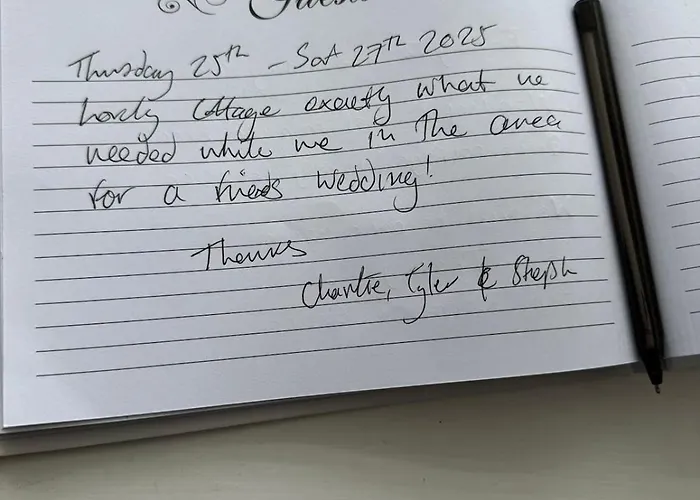 Guest
Thursday 25th - Sat 27th 2025
Lovely Cottage exactly what we
needed while we in the area
for a friends wedding!
Thanks
Charlie, Tyler & Steph